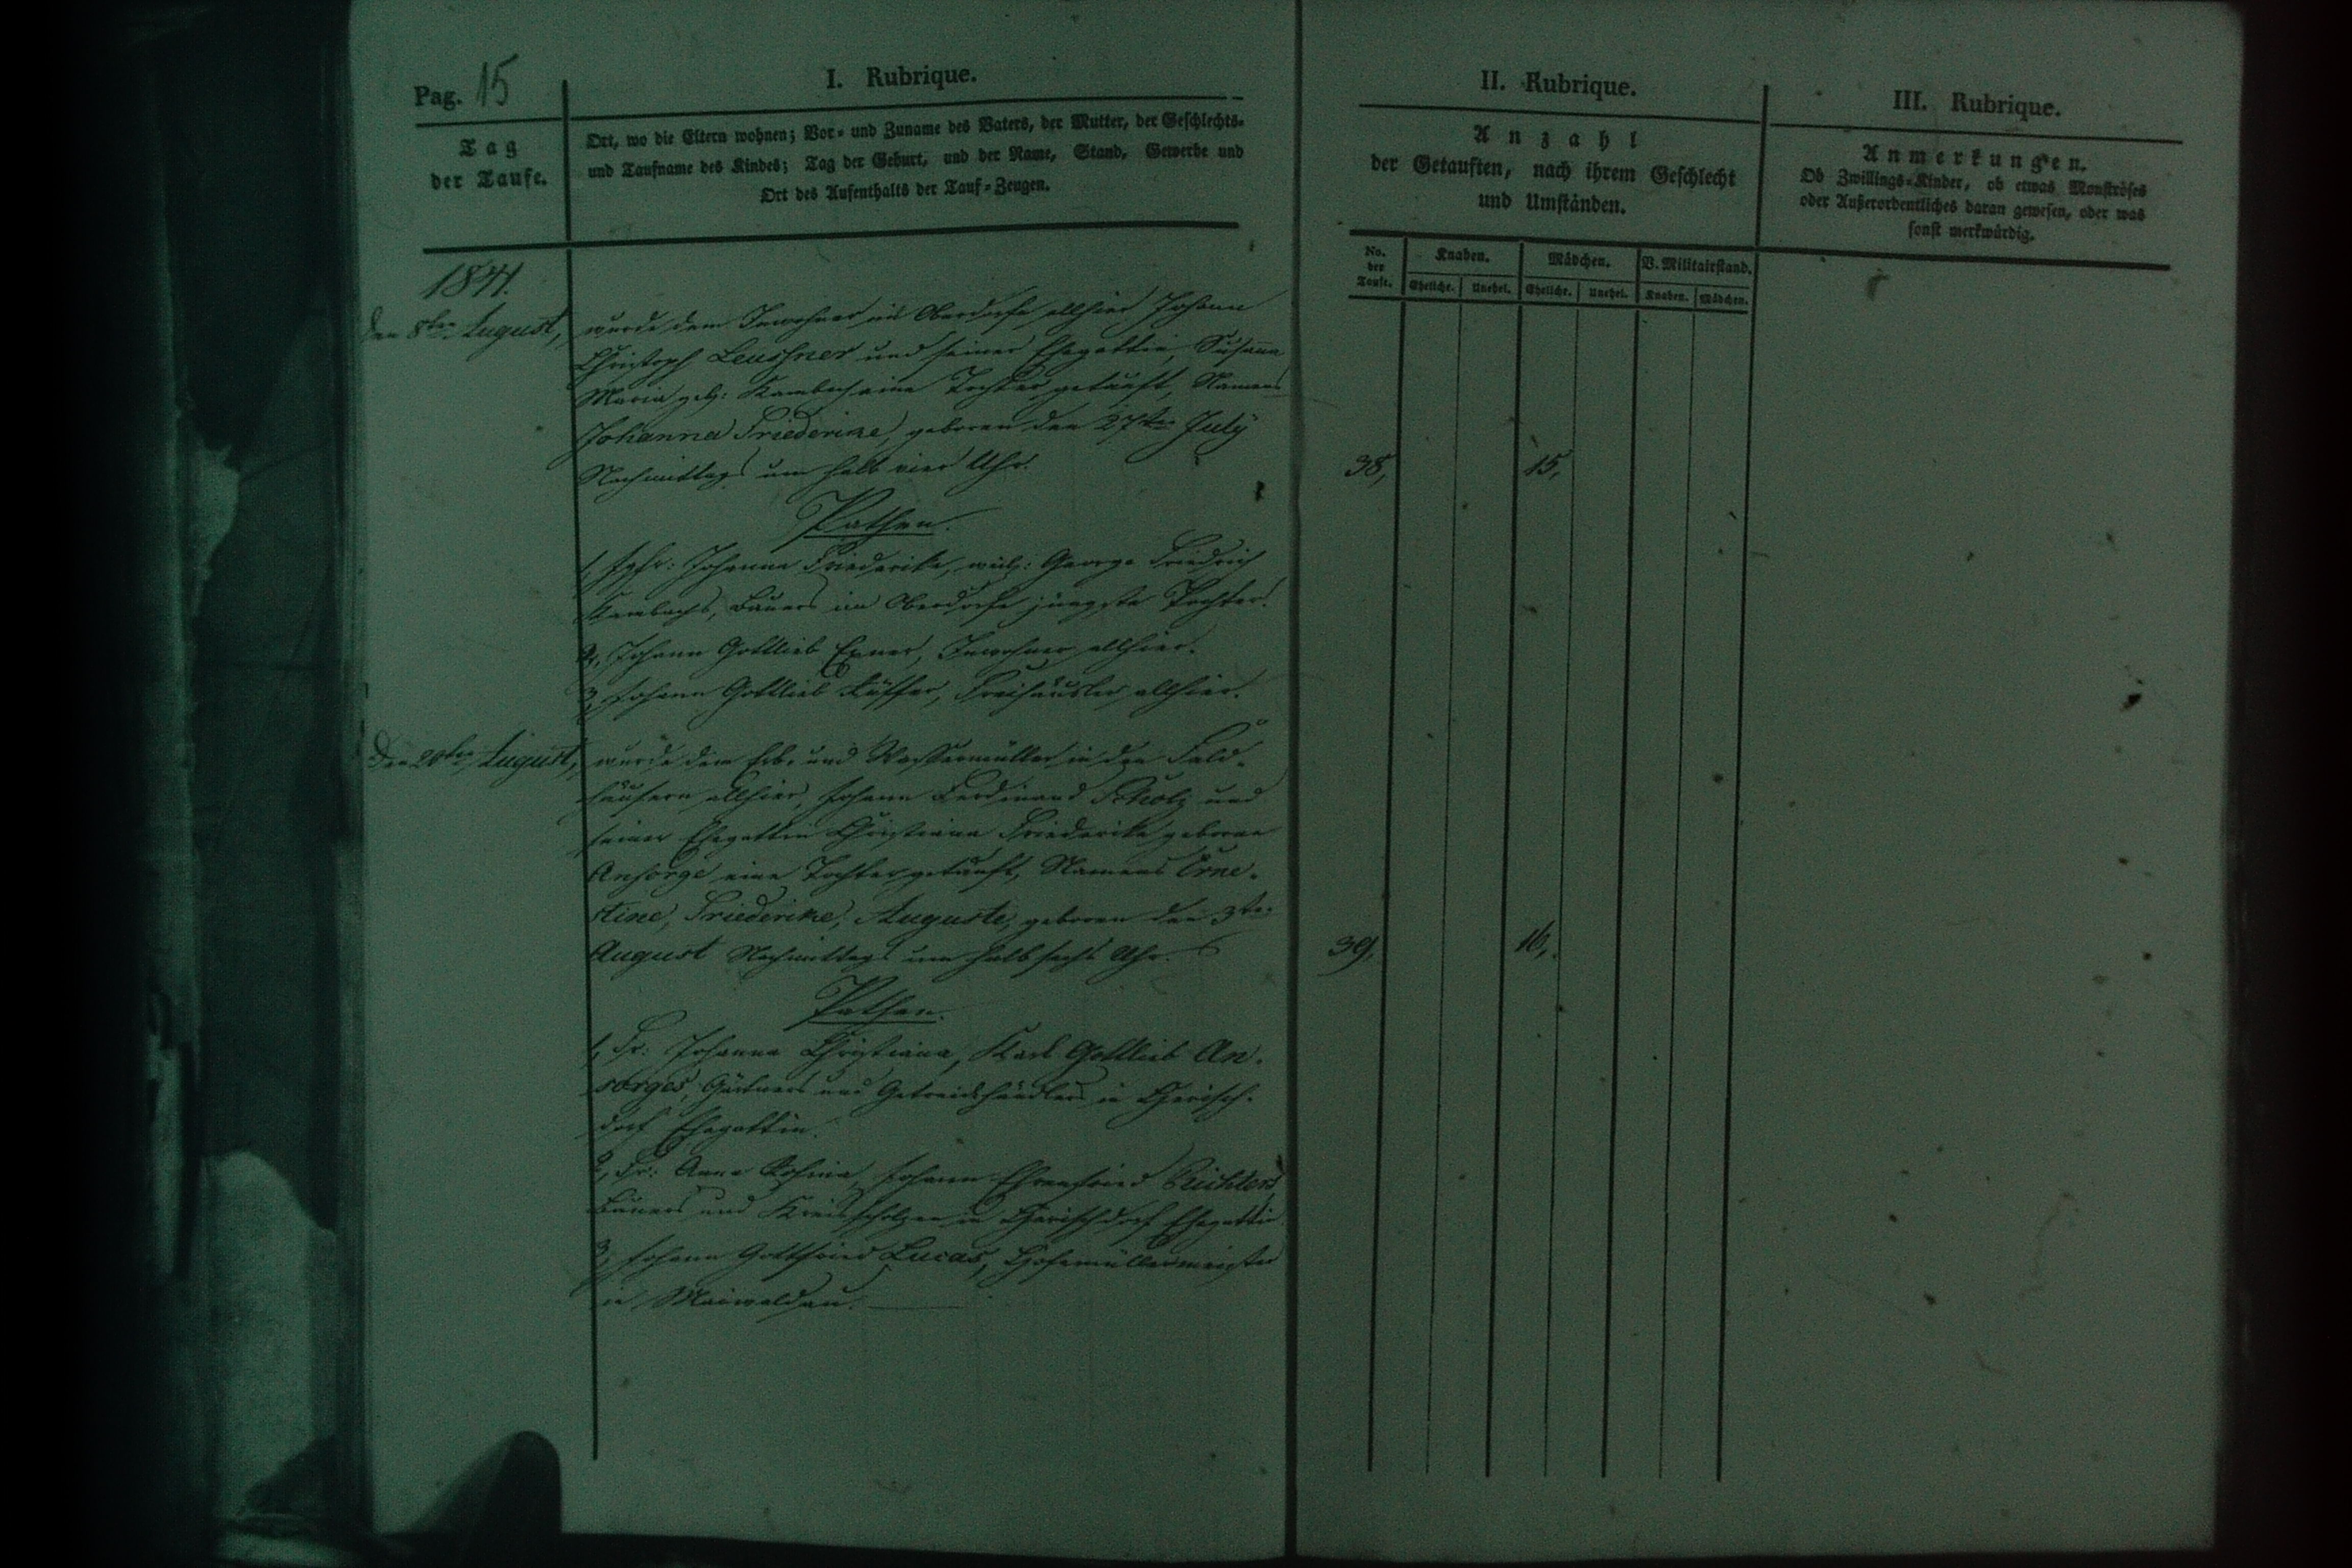 Pag. 15
I. Rubrique.
Tag
der Taufe.
Ort, wo die Eltern wohnen; Vor- und Zuname des Vaters, der Mutter, der Geschlechts-
und Taufname des Kindes; Tag der Geburt, und der Name, Stand, Gewerbe und
Ort des Aufenthalts der Tauf-Zeugen.
1841.
den 8ten August,
wurde dem Inwohner im Oberdorfe allhier Johann
Christoph Leushner und seiner Ehegattin, Susanna
Maria geb: Kambach eine Tochter getauft, Namens
Johanna Friederike, geboren den 27ten July
Nachmittags um halb vier Uhr.
Pathen.
1, Jgfr: Johanna Friederike, weil: George Friedrich
Kambachs, Bauers im Oberdorfe jüngste Tochter.
2, Johann Gottlieb Exner, Inwohner allhier.
3, Johann Gottlieb Küffer, Freihäusler allhier.
Den 20ten August,
wurde dem Erb- und Wassermüller in den Feld-
häusern allhier, Johann Ferdinand Scholz und
seiner Ehegattin Christiane Friederike geborne
Ansorge eine Tochter getauft, Namens Erne-
stine, Friederike, Auguste, geboren den 3ten
August Nachmittags um halb sechs Uhr.
Pathen.
1, Fr: Johanna Christiana, Karl Gottlieb An-
sorges, Gärtners und Getreidehändlers in Herisch-
dorf Ehegattin.
2, Fr: Anna Rosina, Johann Ehrenfried Richters
Bauers und in Herischdorf Ehegattin.
3, Johann Gottfried Lucas, Hofemüllermeister
in Maiwaldau.
II. Rubrique.
Anzahl
der Getauften, nach ihrem Geschlecht
und Umständen.
No.
der
Taufe.
Knaben.
Mädchen.
V. Militairstand.
Eheliche.
Unehel.
Eheliche.
Unehel.
Knaben.
Mädchen.
38,
15,
39,
16,
III. Rubrique.
Anmerkungen.
Ob Zwillings-Kinder, ob etwas Monströses
oder Außerordentliches daran gewesen, oder was
sonst merkwürdig.